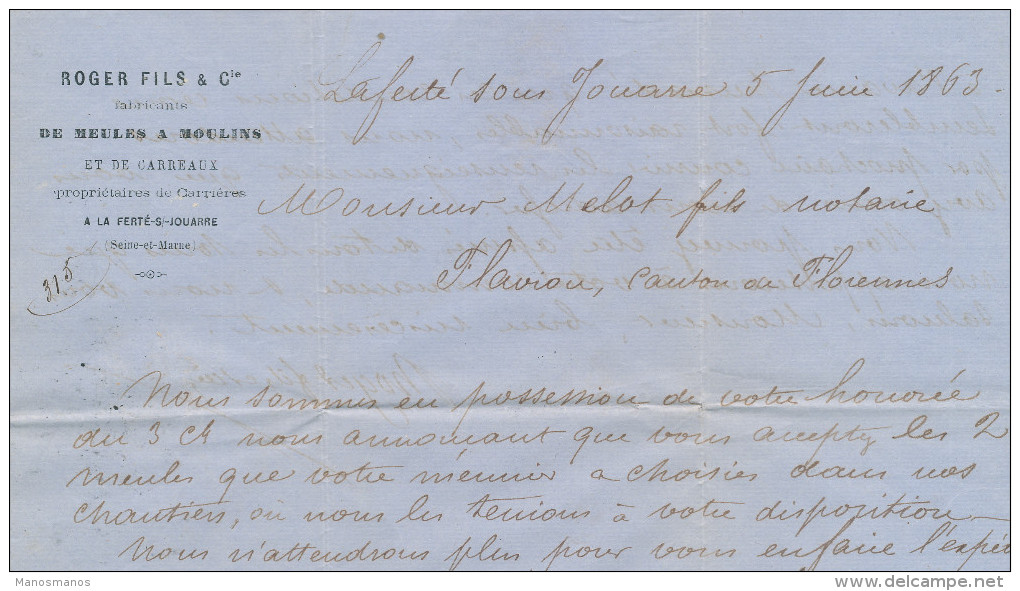 ROGER FILS & Cie
fabricants
DE MEULES A MOULINS
ET DE CARREAUX
propriétaires de Carrières
A LA FERTÉ-S/-JOUARRE
(Seine-et-Marne)
315
Laferté sous Jouarre 5 Juin 1863.
Monsieur Melot fils notaire
Flavion, Canton de Florennes
Nous sommes en possession de votre honorée
du 3 Ct nous annonçant que vous acceptez les 2
meules que votre meunier a choisies dans nos
chantiers, où nous les tenions à votre disposition
Nous n'attendrons plus pour vous en faire l'expéd
Manosmanos
www.delcampe.net